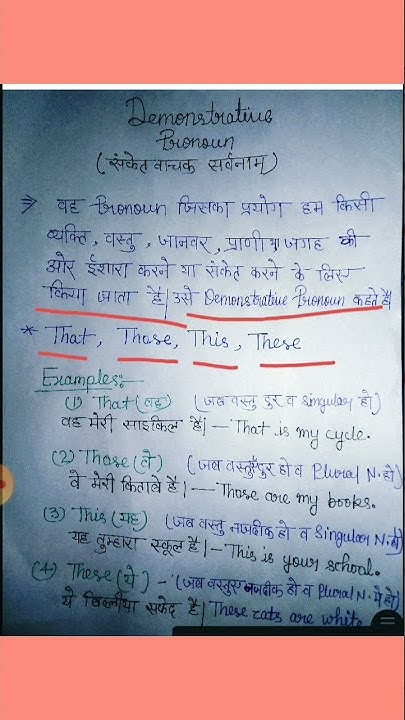 Demonstrative
Pronoun
(संकेतवाचक सर्वनाम)
⇒ वह Pronoun जिसका प्रयोग हम किसी
व्यक्ति, वस्तु, जानवर, प्राणी या जगह की
ओर ईशारा करने या संकेत करने के लिए
किया जाता है, उसे Demonstrative Pronoun कहते है।
* That, Those, This, These
Examples:-
(1) That (वह) (जब वस्तु दूर व singular हो)
वह मेरी साइकिल है। — That is my cycle.
(2) Those (वे) (जब वस्तुएँ दूर हो व Plural N. हो)
वे मेरी किताबे है। — Those are my books.
(3) This (यह) (जब वस्तु नजदीक हो व Singular N. हो)
यह तुम्हारा स्कूल है। — This is your school.
(4) These (ये) - (जब वस्तुए नजदीक हो व Plural N. में हो)
ये बिल्लीया सफेद है। These cats are white